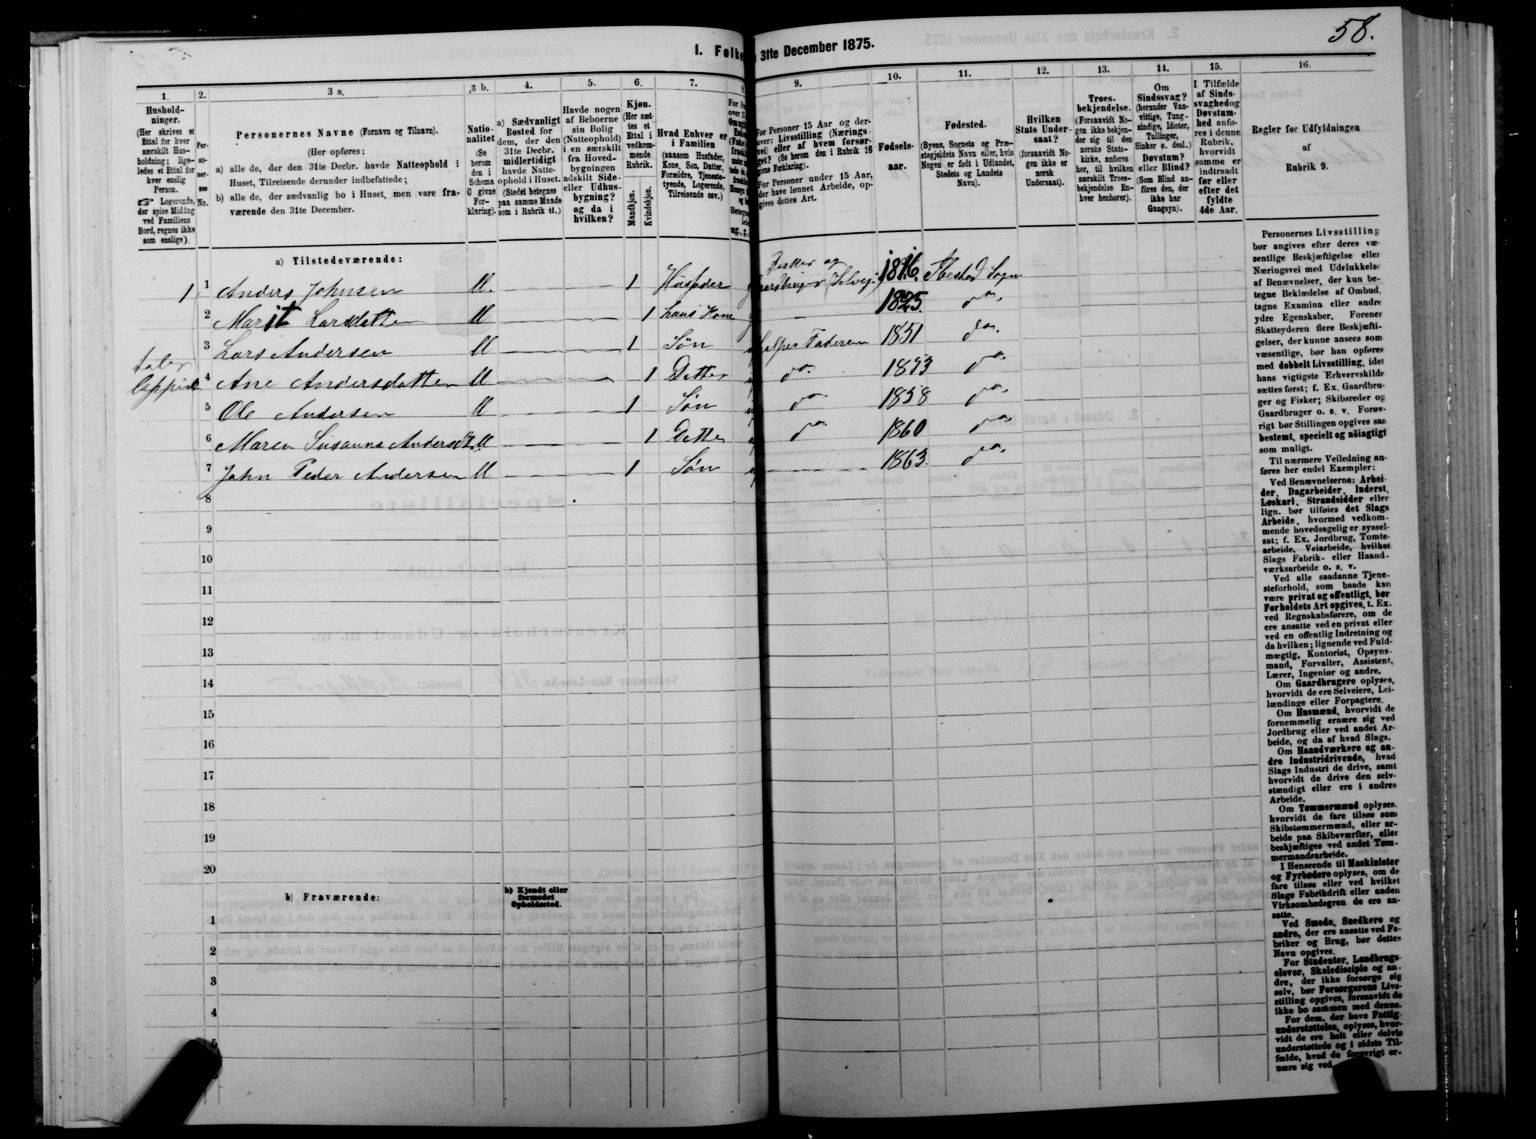 58.
I. Folke
31te December 1875.
1.
Hushold-
ninger.
(Her skrives et
Ettal for hver
særskilt Hus-
holdning; lige-
ledes et Ettal for
hver enslig
Person.
☞ Logerende,
der spise Middag
ved Familiens
Bord, regnes ikke
som enslige).
2.
Per-
so-
ner-
nes
No.
3 a.
Personernes Navne (Fornavn og Tilnavn).
(Her opføres:
a) alle de, der den 31te Decbr. havde Natteophold i
Huset, Tilreisende derunder indbefattede;
b) alle de, der sædvanlig bo i Huset, men vare fra-
værende den 31te December.
3 b.
Natio-
nalitet
(Se
herom
den i
Schema
C givne
For-
klaring).
4.
a) Sædvanligt
Bosted for
dem, der den
31te Decbr.
midlertidigt
havde Natte-
ophold i Huset.
(Stedet betegnes
paa samme Maade
som i Rubrik 11.)
5.
Havde nogen
af Beboerne
sin Bolig
(Natteophold)
i en særskilt
fra Hoved-
bygningen
adskilt Side-
eller Udhus-
bygning?
og da i
hvilken?
6.
Kjøn.
(Her sæt-
tes et
Ettal i
vedkom-
mende
Rubrik.
Mandkjøn.
Kvindekjøn.
7.
Hvad Enhver er
i Familien
(saasom Husfader,
Kone, Søn, Datter,
Forældre, Tjeneste-
tyende, Logerende,
Tilreisende osv.)
9.
For Personer 15 Aar og der-
over: Livsstilling (Nærings-
vei) eller af hvem forsør-
get? (Se herom den i Rubrik 16
givne Forklaring).
For Personer under 15 Aar,
der have lønnet Arbeide, op-
gives dettes Art.
10.
Fødsels-
aar.
11.
Fødested.
(Byens, Sognets og Præ-
stegjeldets Navn eller, hvis
Nogen er født i Udlandet,
Stedets og Landets
Navn).
12.
Hvilken
Stats Under-
saat?
(forsaavidt No-
gen ikke er
norsk
Undersaat).
13.
Troes-
bekjendelse.
(Forsaavidt No-
gen ikke bekjen-
der sig til den
norske Stats-
kirke, anføres
her, til hvilken
særskilt Troes-
bekjendelse En-
hver henhører).
14.
Om
Sindssvag?
(herunder Van-
vittige, Tung-
sindige, Idioter,
Tullinger,
Sinker o. desl.)
Døvstum?
eller Blind?
(Som Blind an-
føres den, der
ikke har
Gangsyn).
15.
I Tilfælde
af Sinds-
svaghed og
Døvstum-
hed anfø-
res i denne
Rubrik,
hvorvidt
samme er
indtraadt
før eller
efter det
fyldte
4de Aar.
16.
Regler for Udfyldningen
af
Rubrik 9.
a) Tilstedeværende:
1 1 Anders Johnsen M. 1 Husfader Fisker og (Selvej. 1816. Sogn
2 Marit Larsdatter M 1 hans Kone 1825. do.
3 Lars Andersen M 1 Søn hjelper Faderen 1851 do.
4 Ane Andersdatter M 1 Datter do. 1853 do.
5 Ole Andersen M 1 Søn do. 1858 do.
6 Maren Susanna Andersdt. M 1 Datter do. 1860 do.
7 John Peder Andersen M 1 Søn 1863. do.
8
9
10
11
12
13
14
15
16
17
18
19
20
b) Fraværende:
b) Kjendt eller
formodet
Opholdssted.
1
2
3
4
5
Personernes Livsstilling
bør angives efter deres væ-
sentlige Beskjæftigelse eller
Næringsvei med Udelukkelse
af Benævnelser, der kun be-
tegne Beklædelse af Ombud,
tagne Examina eller andre
ydre Egenskaber. Forener
Skatteyderen flere Beskjæfti-
gelser, der kunne ansees som
væsentlige, bør han opføres
med dobbelt Livsstilling, idet
hans vigtigste Erhvervskilde
sættes først; f. Ex. Gaardbru-
ger og Fisker; Skibsreder og
Gaardbruger o. s. v. Forøv-
rigt bør Stillingen opgives saa
bestemt, specielt og nøiagtigt
som muligt.
Til nærmere Veiledning an-
føres her endel Exempler:
Ved Benævnelserne: Arbei-
der, Dagarbeider, Inderst,
Løskarl, Strandsidder eller
lign. bør tilføies det Slags
Arbeide, hvormed vedkom-
mende hovedsagelig er syssel-
sat; f. Ex. Jordbrug, Tomte-
arbeide, Veiarbeide, hvilket
Slags Fabrik- eller Haand-
værksarbeide o. s. v.
Ved alle saadanne Tjene-
steforhold, som baade kan
være privat og offentligt, bør
Forholdets Art opgives, t. Ex.
ved Regnskabsførere, om de
ere ansatte ved en privat eller
ved en offentlig Indretning og
da hvilken; lignende ved Fuld-
mægtig, Kontorist, Opsyns-
mand, Forvalter, Assistent,
Lærer, Ingeniør og andre.
Om Gaardbrugere oplyses,
hvorvidt de ere Selveiere, Lei-
lændinge eller Forpagtere.
Om Husmænd, hvorvidt de
fornemmelig ernære sig ved
Jordbrug eller ved andet Ar-
beide, og da af hvad Slags.
Om Haandværkere og an-
dre Industridrivende, hvad
Slags Industri de drive, samt
hvorvidt de drive den selv-
stændigt eller ere i andres
Arbeide.
Om Tømmermænd oplyses,
hvorvidt de fare tilsøs som
Skibstømmermænd, eller ar-
beide paa Skibsværfter, eller
beskjæftiges ved andet Tøm-
mermandsarbeide.
I Henseende til Maskinister
og Fyrbødere oplyses, om de
fare tilsøs eller ved hvilket
Slags Fabrikdrift eller anden
Virksomhedsgren de ere an-
satte.
Ved Smede, Snedkere og
andre, der ere ansatte ved Fa-
briker og Brug, bør dettes
Navn opgives.
For Studenter, Landbrugs-
elever, Skoledisciple og an-
dre, der ikke forsørge sig
selv, bør Forsørgerens Livs-
stilling opgives, forsaavidt de
ikke bo sammen med denne.
For dem, der have Fattig-
understøttelse, oplyses, hvor-
vidt de ere helt eller delvis
understøttede og i sidste Til-
fælde, hvad de forøvrigt er-
nære sig ved.